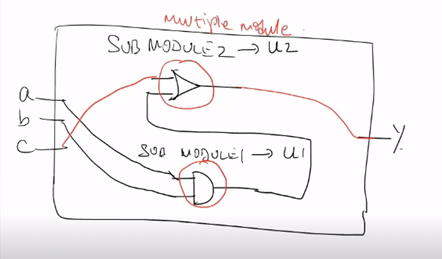 multiple module.
SUB MODULE2 → U2
a
b
c
y
SUB MODULE1 → U1